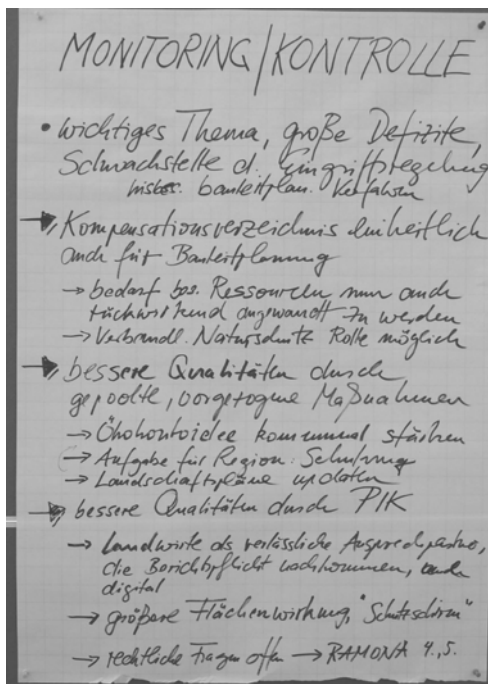 MONITORING/KONTROLLE
• wichtiges Thema, große Defizite,
Schwachstelle d. Eingriffsregelung
insbes. bauleitplan. Verfahren
→ Kompensationsverzeichnis einheitlich
auch für Bauleitplanung
→ bedarf bes. Ressourcen um auch
rückwirkend angewandt zu werden
→ Verbandl. Naturschutz Rolle möglich
→ bessere Qualitäten durch
gepoolte, vorgezogene Maßnahmen
→ Ökokontoidee kommunal stärken
→ Aufgabe für Region: Schulung
→ Landschaftspläne updaten
→ bessere Qualitäten durch PIK
→ Landwirte als verlässliche Ansprechpartner,
die Berichtpflicht nachkommen, auch
digital
→ größere Flächenwirkung, "Schutzschirm"
→ rechtliche Fragen offen → RAMONA 4., 5.